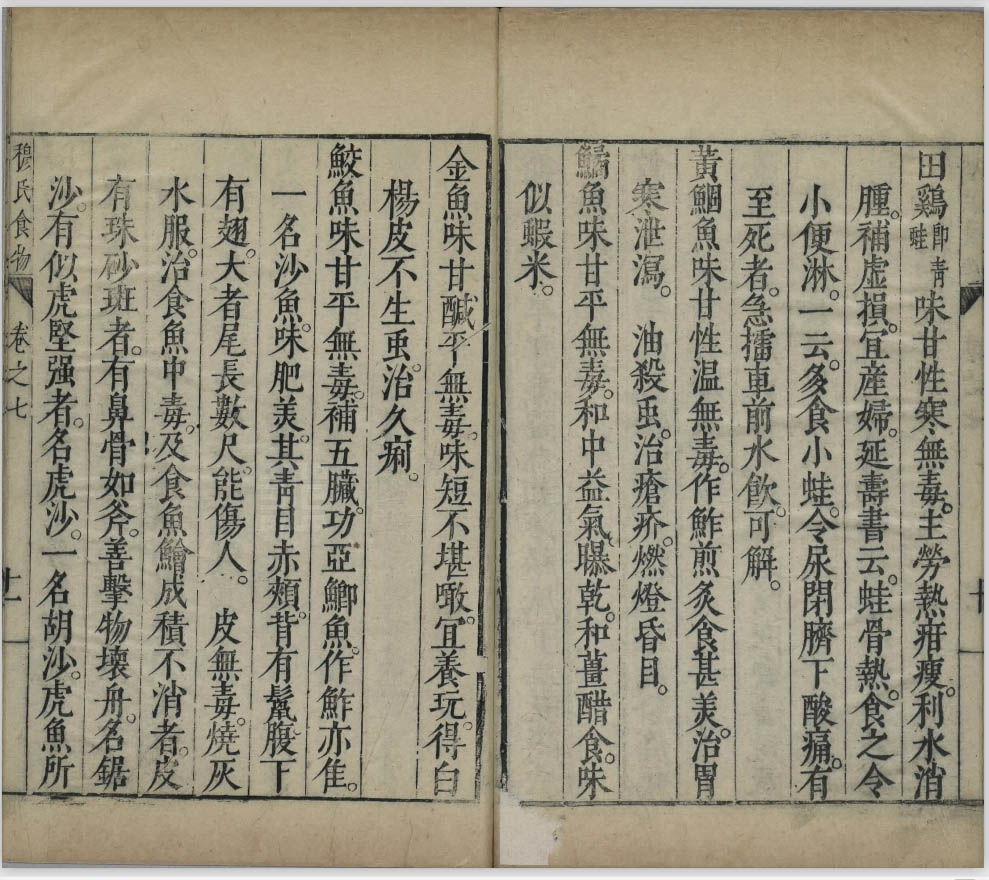 田鷄即青蛙味甘性寒無毒。主勞熱疳瘦。利水消
腫。補虛損。宜産婦。延壽書云。蛙骨熱。食之令
小便淋。一云。多食小蛙。令尿閉臍下酸痛。有
至死者。急擂車前水飲。可解。
黃鯝魚味甘性温無毒。作鮓煎炙食甚美。治胃
寒泄瀉。 油殺虫。治瘡疥。燃燈昏目。
鱊魚味甘平無毒。和中益氣曝乾。和薑醋食。味
似蝦米。
金魚味甘醎平無毒。味短不堪噉。宜養玩。得白
楊皮不生虫。治久痢。
鮫魚味甘平無毒。補五臟。功亞鯽魚。作鮓亦佳。
一名沙魚。味肥美。其青目赤頰。背有鬣腹下
有翅。大者尾長數尺。能傷人。 皮無毒。燒灰
水服。治食魚中毒。及食魚鱠成積不消者。皮
有珠砂斑者。有鼻骨如斧。善擊物壞舟。名鋸
沙。有似虎堅强者。名虎沙。一名胡沙。虎魚所
穆氏食物 卷之七
十一